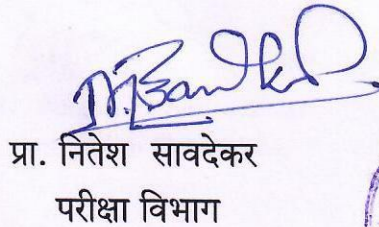 प्रा. नितेश सावदेकर
परीक्षा विभाग